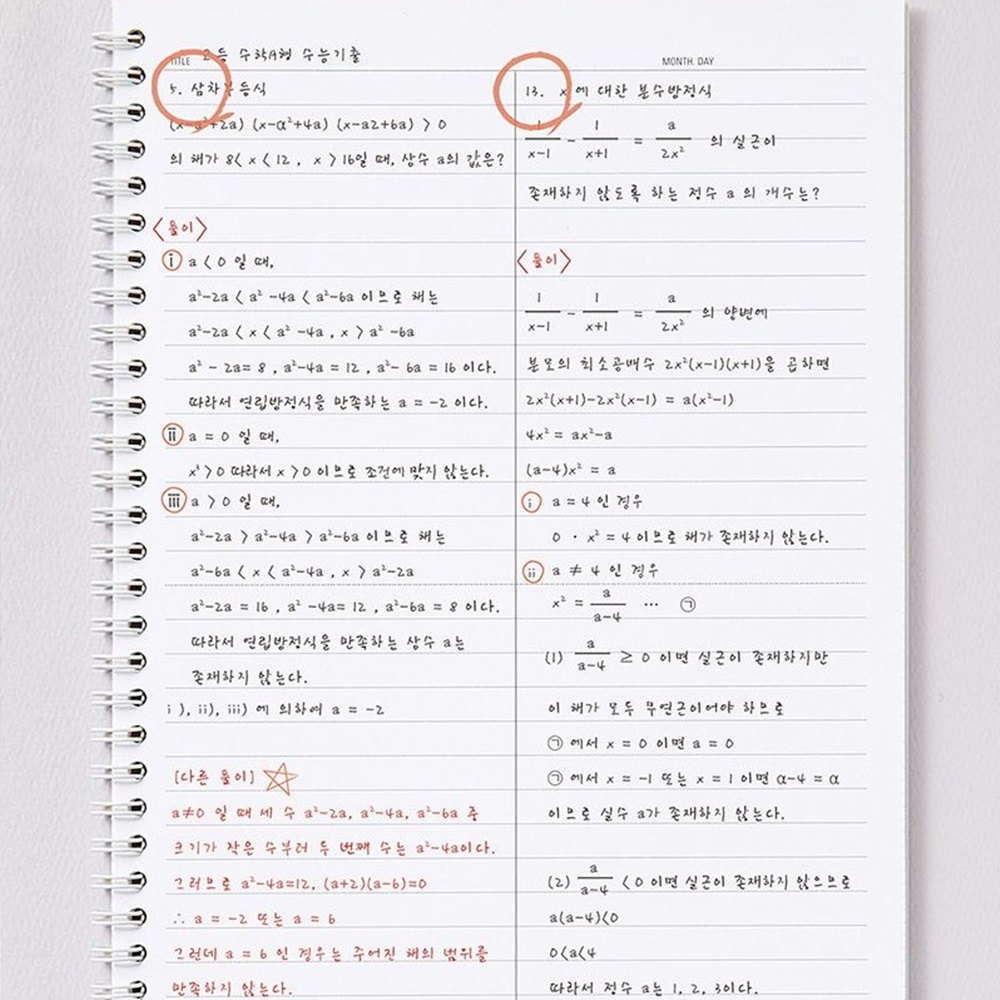 TITLE 고등 수학A형 수능기출
MONTH. DAY
5. 삼차부등식
(x-a²+2a) (x-α²+4a) (x-a2+6a) > 0
의 해가 8< x < 12 , x > 16일 때, 상수 a의 값은?
<풀이>
ⅰ a < 0 일 때,
a²-2a < a² -4a < a²-6a 이므로 해는
a²-2a < x < a² -4a , x > a² -6a
a² - 2a= 8 , a²-4a = 12 , a²- 6a = 16 이다.
따라서 연립방정식을 만족하는 a = -2 이다.
ⅱ a = 0 일 때,
x³>0 따라서 x >0 이므로 조건에 맞지 않는다.
ⅲ a > 0 일 때,
a²-2a > a²-4a > a²-6a 이므로 해는
a²-6a < x < a²-4a , x > a²-2a
a²-2a = 16 , a² -4a= 12 , a²-6a = 8 이다.
따라서 연립방정식을 만족하는 상수 a는
존재하지 않는다.
i ), ii), iii) 에 의하여 a = -2
[다른 풀이]
a≠0 일 때 세 수 a²-2a, a²-4a, a²-6a 중
크기가 작은 수부터 두 번째 수는 a²-4a이다.
그러므로 a²-4a=12, (a+2)(a-6)=0
∴ a = -2 또는 a = 6
그런데 a = 6 인 경우는 주어진 해의 범위를
만족하지 않는다.
13. x 에 대한 분수방정식
1/(x-1) - 1/(x+1) = a/(2x²) 의 실근이
존재하지 않도록 하는 정수 a 의 개수는?
<풀이>
1/(x-1) - 1/(x+1) = a/(2x²) 의 양변에
분모의 최소공배수 2x²(x-1)(x+1)을 곱하면
2x²(x+1)-2x²(x-1) = a(x²-1)
4x² = ax²-a
(a-4)x² = a
ⅰ a = 4 인 경우
0 · x² = 4 이므로 해가 존재하지 않는다.
ⅱ a ≠ 4 인 경우
x² = a/(a-4) … ㉠
(1) a/(a-4) ≥ 0 이면 실근이 존재하지만
이 해가 모두 무연근이어야 하므로
㉠ 에서 x = 0 이면 a = 0
㉠ 에서 x = -1 또는 x = 1 이면 α-4 = α
이므로 실수 a가 존재하지 않는다.
(2) a/(a-4) < 0 이면 실근이 존재하지 않으므로
a(a-4)<0
0<a<4
따라서 정수 a는 1, 2, 3이다.